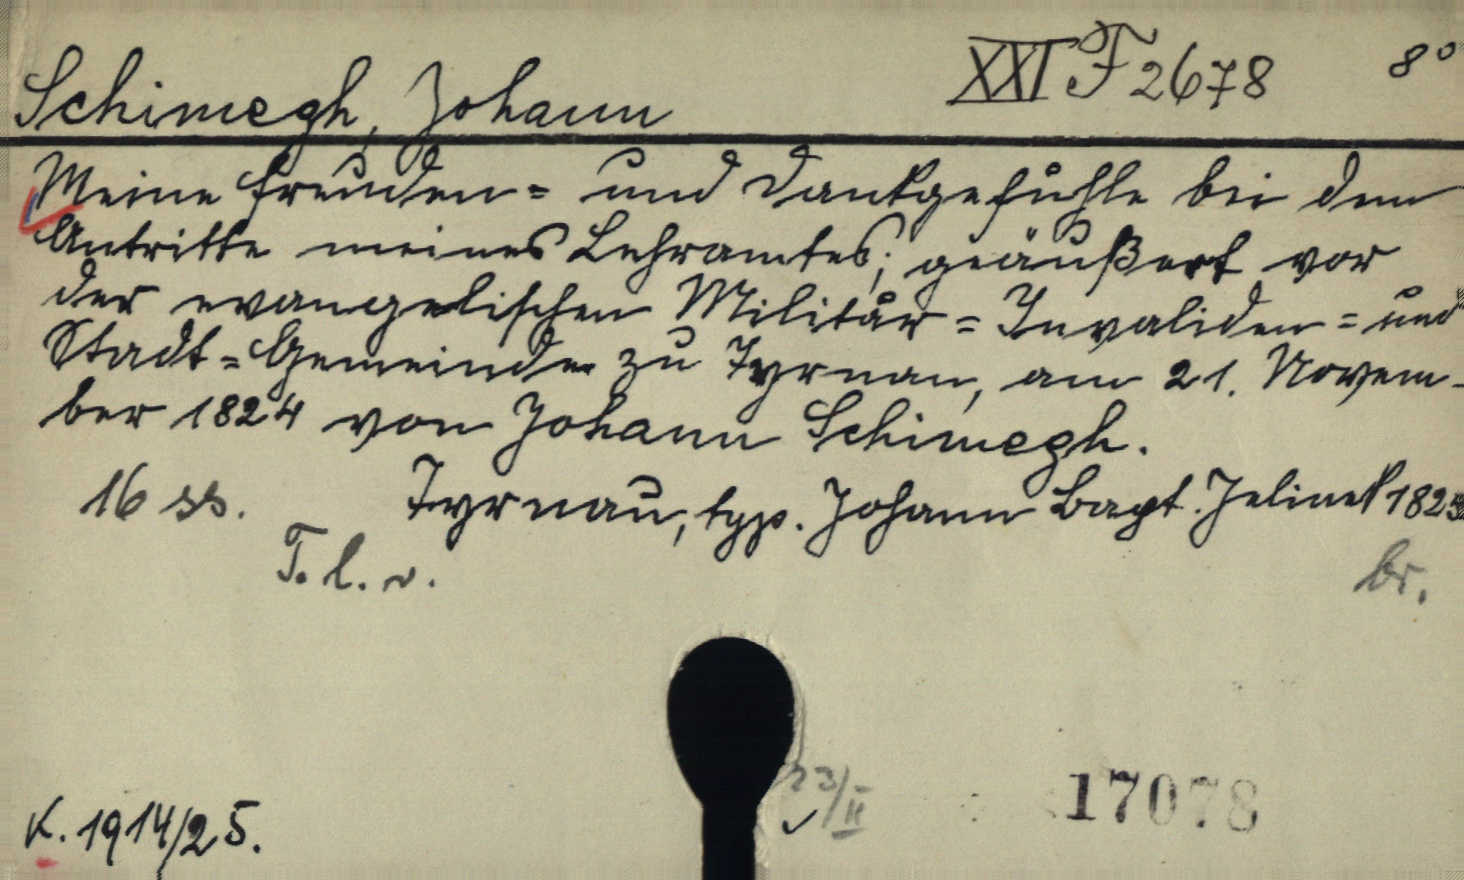 Schimegh, Johann XXI F 2678 8°
Meine Freuden= und Dankgefühle bei dem
Antritte meines Lehramtes; geäußert vor
der evangelischen Militär=Invaliden= und
Stadt=Gemeinde zu Tyrnau, am 21. Novem-
ber 1824 von Johann Schimegh.
16 ss. Tyrnau, typ. Johann Bapt. Jelinek 1825
T. l. v. br.
23/II
17078
K. 1914/25.